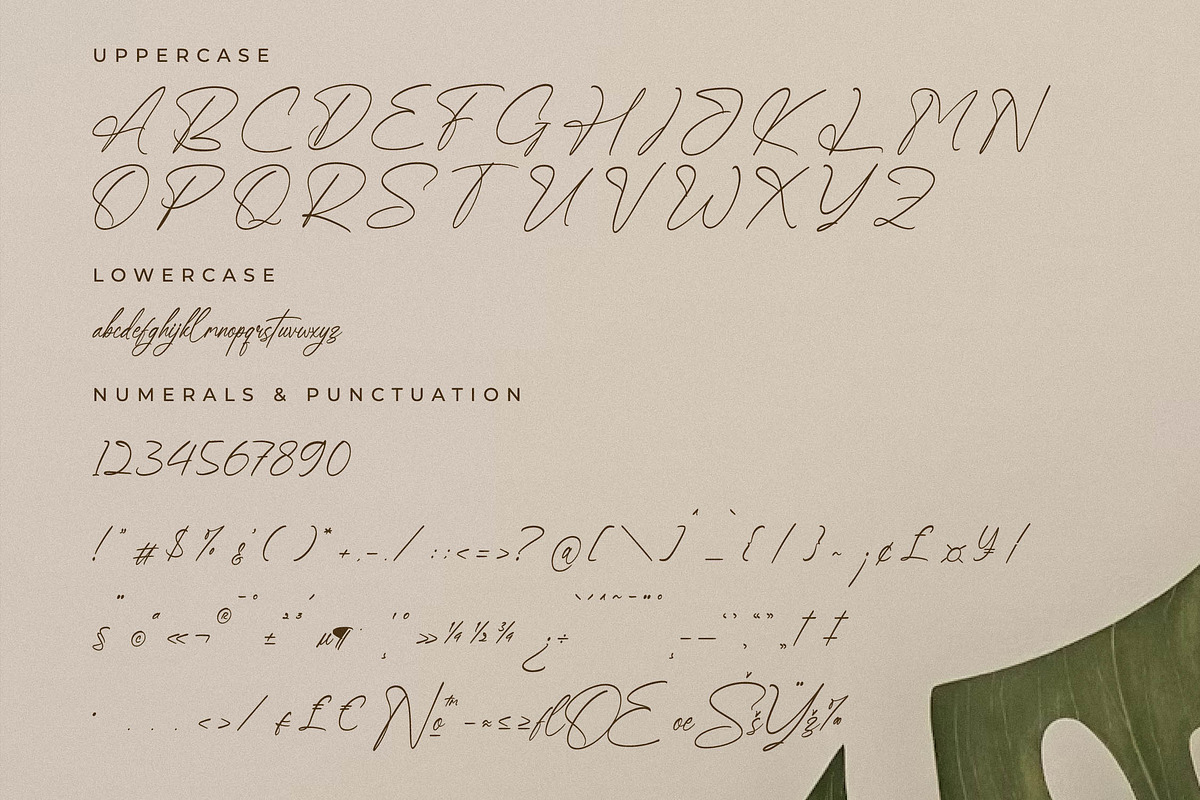 UPPERCASE
ABCDEFGHIJKLMN
OPQRSTUVWXYZ
LOWERCASE
abcdefghijklmnopqrstuvwxyz
NUMERALS & PUNCTUATION
1234567890
!"#$%&'()*+,-./:;<=>?@[\]^_`{|}~¡¢£¤¥¦
§¨©ª«¬®¯°±²³´µ¶·¸¹º»¼½¾¿÷
•...‹›⁄₣£€№™−≈≤≥flŒœŠšŸž‰